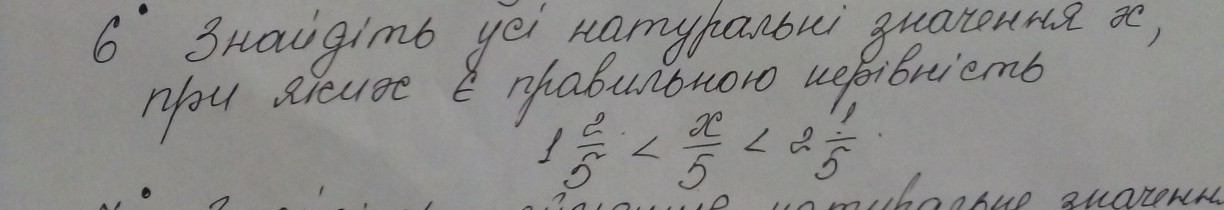 6° Знайдіть усі натуральні значення x,
при яких є правильною нерівність
1 2/5 < x/5 < 2 1/5
натуральне значення